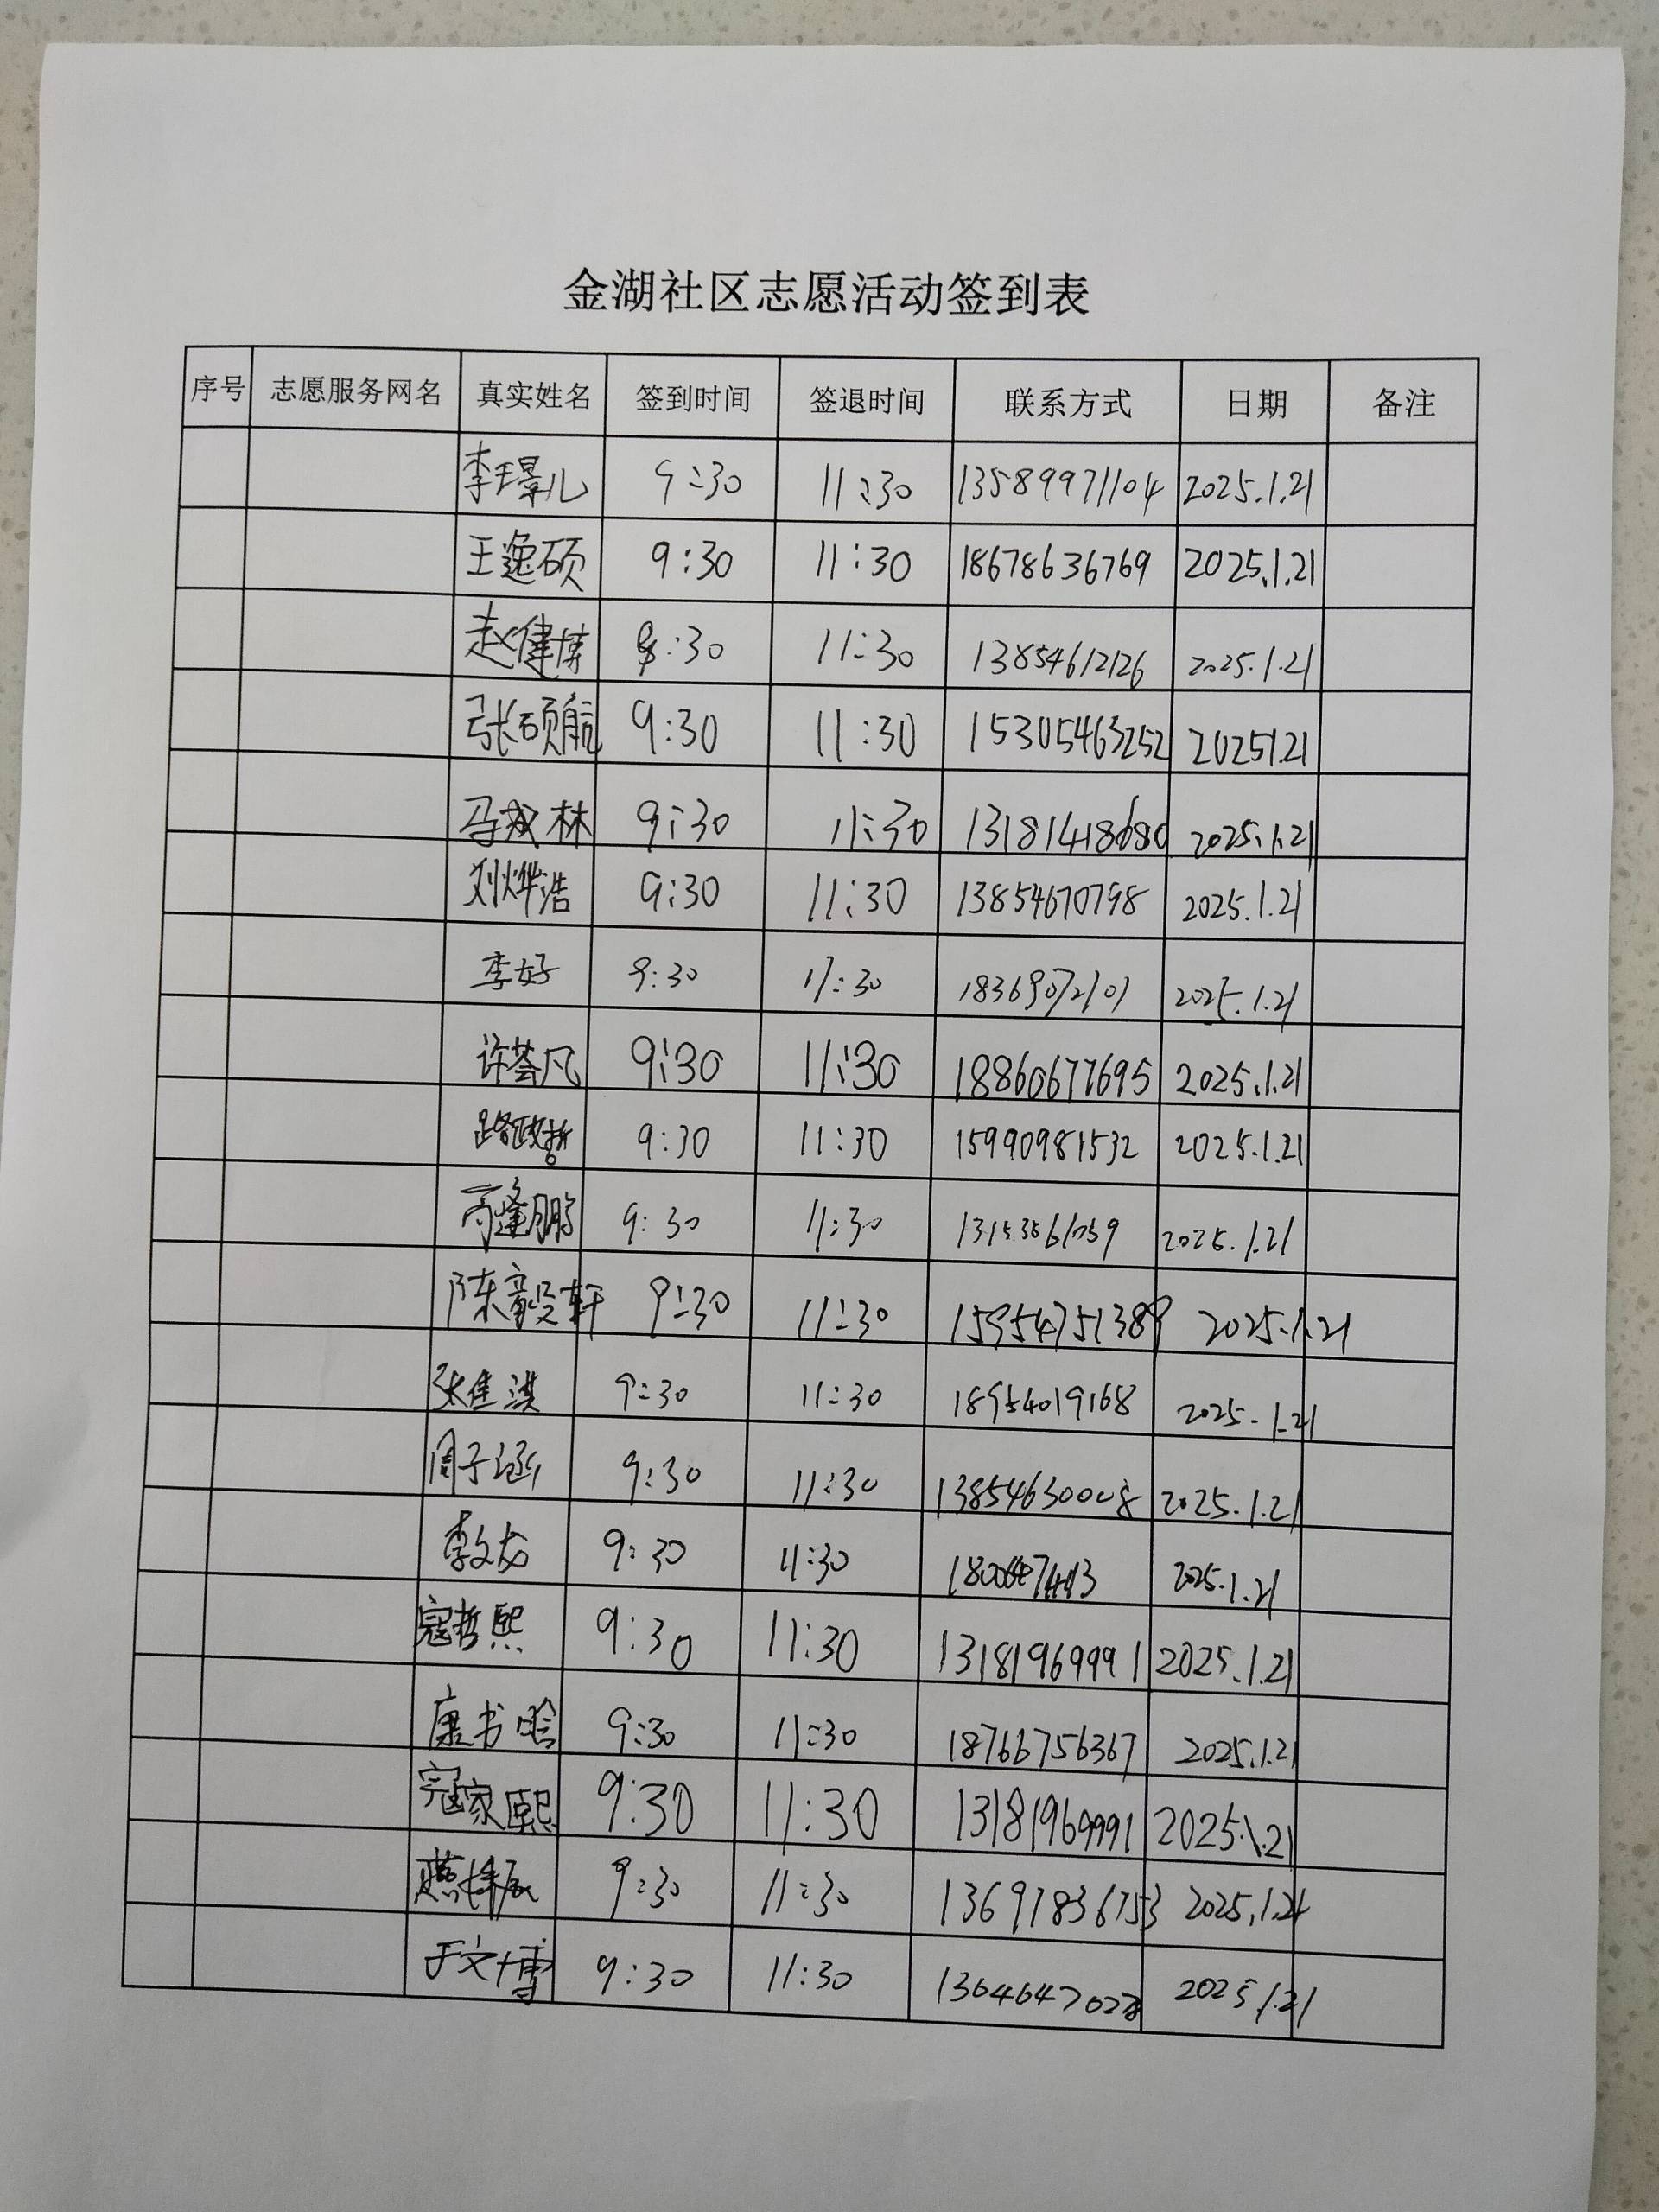 金湖社区志愿活动签到表
序号 志愿服务网名 真实姓名 签到时间 签退时间 联系方式 日期 备注
李璟儿 9:30 11:30 13589971104 2025.1.21
王逸硕 9:30 11:30 18678636769 2025.1.21
赵健博 :30 11:30 13854612126 2025.1.21
张硕航 9:30 11:30 15305463252 20251.21
马成林 9:30 11:30 13181418680 2025.1.21
刘烨浩 9:30 11:30 13854670798 2025.1.21
李好 9:30 11:30 2025.1.21
许荟凡 9:30 11:30 18860677695 2025.1.21
路政哲 9:30 11:30 15990981532 2025.1.21
逢鹏 9:30 11:30 2025.1.21
陈毅轩 9:30 11:30 15954751389 2025.1.21
张佳淇 9:30 11:30 18954019168 2025.1.21
周子涵 9:30 11:30 13854630008 2025.1.21
李文龙 9:30 11:30 2025.1.21
寇哲熙 9:30 11:30 13181969991 2025.1.21
康书晗 9:30 11:30 18766756367 2025.1.21
寇家熙 9:30 11:30 13181969991 2025.1.21
9:30 11:30 13697836753 2025.1.21
于文博 9:30 11:30 2025.1.21